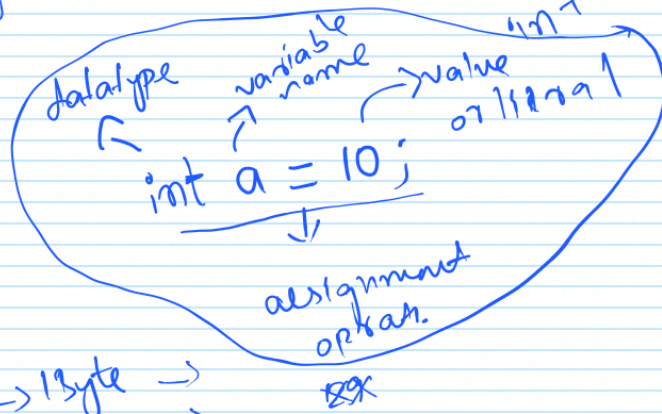 "int"
datatype
variable
name
value
or literal
int a = 10;
assignment
optran.
→ 1Byte →